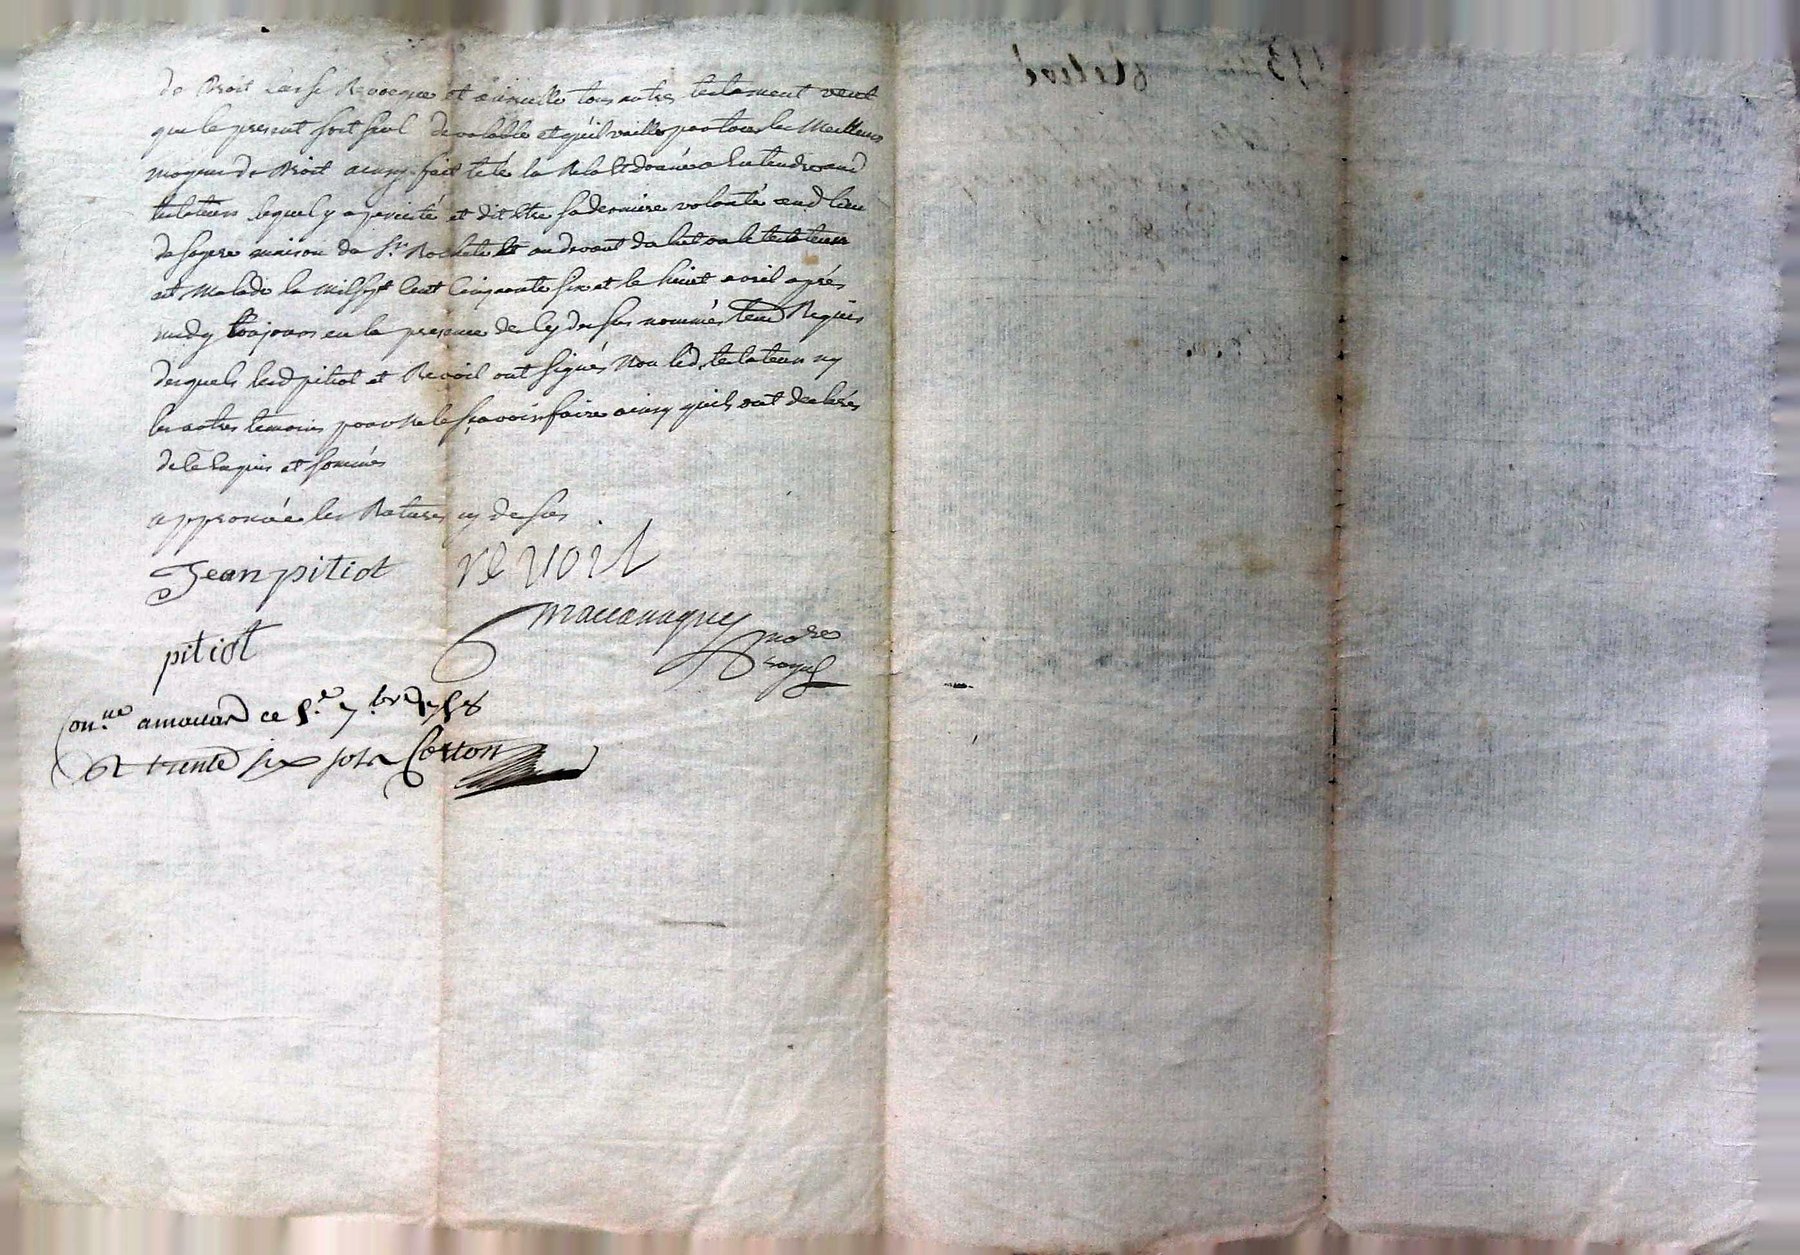 de Droit casse Revoque et annulle tous autres testament veut
que le present soit seul de valable et qu'il vaille par tous les Meilleurs
moyens de Droit ainsy fait été la Relu et donnée a Entendre aud
testateur lequel y a percisté et dit Etre sa derniere volonté aud lieu
de maison de St. et au devant du lict ou le testateur
est Malade le mil sept cent cinquante six et le huit avril après
midy toujours en la presence de cy dessus nommés tem Requis
desquels lesd pitiot et Revoil ont signés Non led. testateur ny
les autres temoins pour ne le sçavoir faire ainsy quils ont declarés
de ce Enquis et sommés
approuvée les Ratures cy dessus
Jean pitiot revoil
pitiot
Maccanagney
no.re
royal
Con.lle ce 7.bre 1758
trente six sols Cotton